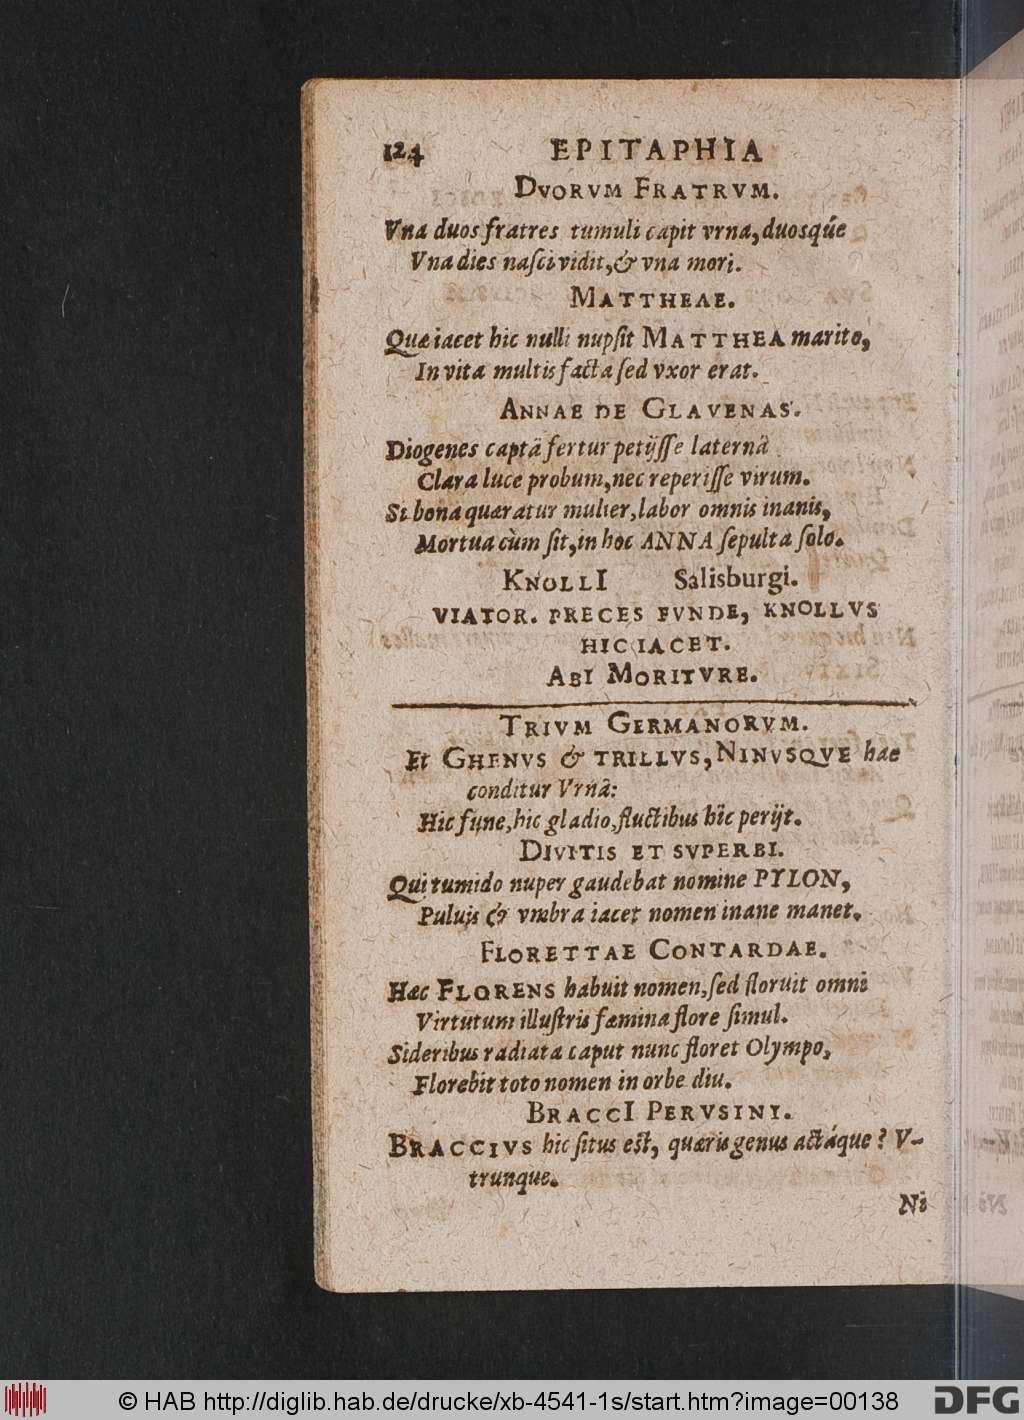 124 EPITAPHIA
DVORVM FRATRVM.
Vna duos fratres tumuli capit vrna, duosqúe
Vna dies nasci vidit, & vna mori.
MATTHEAE.
Quæ iacet hic nulli nupsit MATTHEA marito,
In vita multis facta sed vxor erat.
ANNAE DE GLAVENAS.
Diogenes captâ fertur petijsse laternâ
Clara luce probum, nec reperisse virum.
Si bona quæratur mulier, labor omnis inanis,
Mortua cùm sit, in hoc ANNA sepulta solo.
KNOLLI Salisburgi.
VIATOR. PRECES FVNDE, KNOLLVS
HIC IACET.
ABI MORITVRE.
TRIVM GERMANORVM.
Et GHENVS & TRILLVS, NINVSQVE hac
conditur Vrnâ:
Hic fune, hic gladio, fluctibus hîc perijt.
DIVITIS ET SVPERBI.
Qui tumido nuper gaudebat nomine PYLON,
Puluis & vmbra iacet nomen inane manet.
FLORETTAE CONTARDAE.
Hæc FLORENS habuit nomen, sed floruit omni
Virtutum illustris fæmina flore simul.
Sideribus radiata caput nunc floret Olympo,
Florebit toto nomen in orbe diu.
BRACCI PERVSINI.
BRACCIVS hic situs est, quæris genus actáque? V-
trunque.
Ni
© HAB http://diglib.hab.de/drucke/xb-4541-1s/start.htm?image=00138
DFG